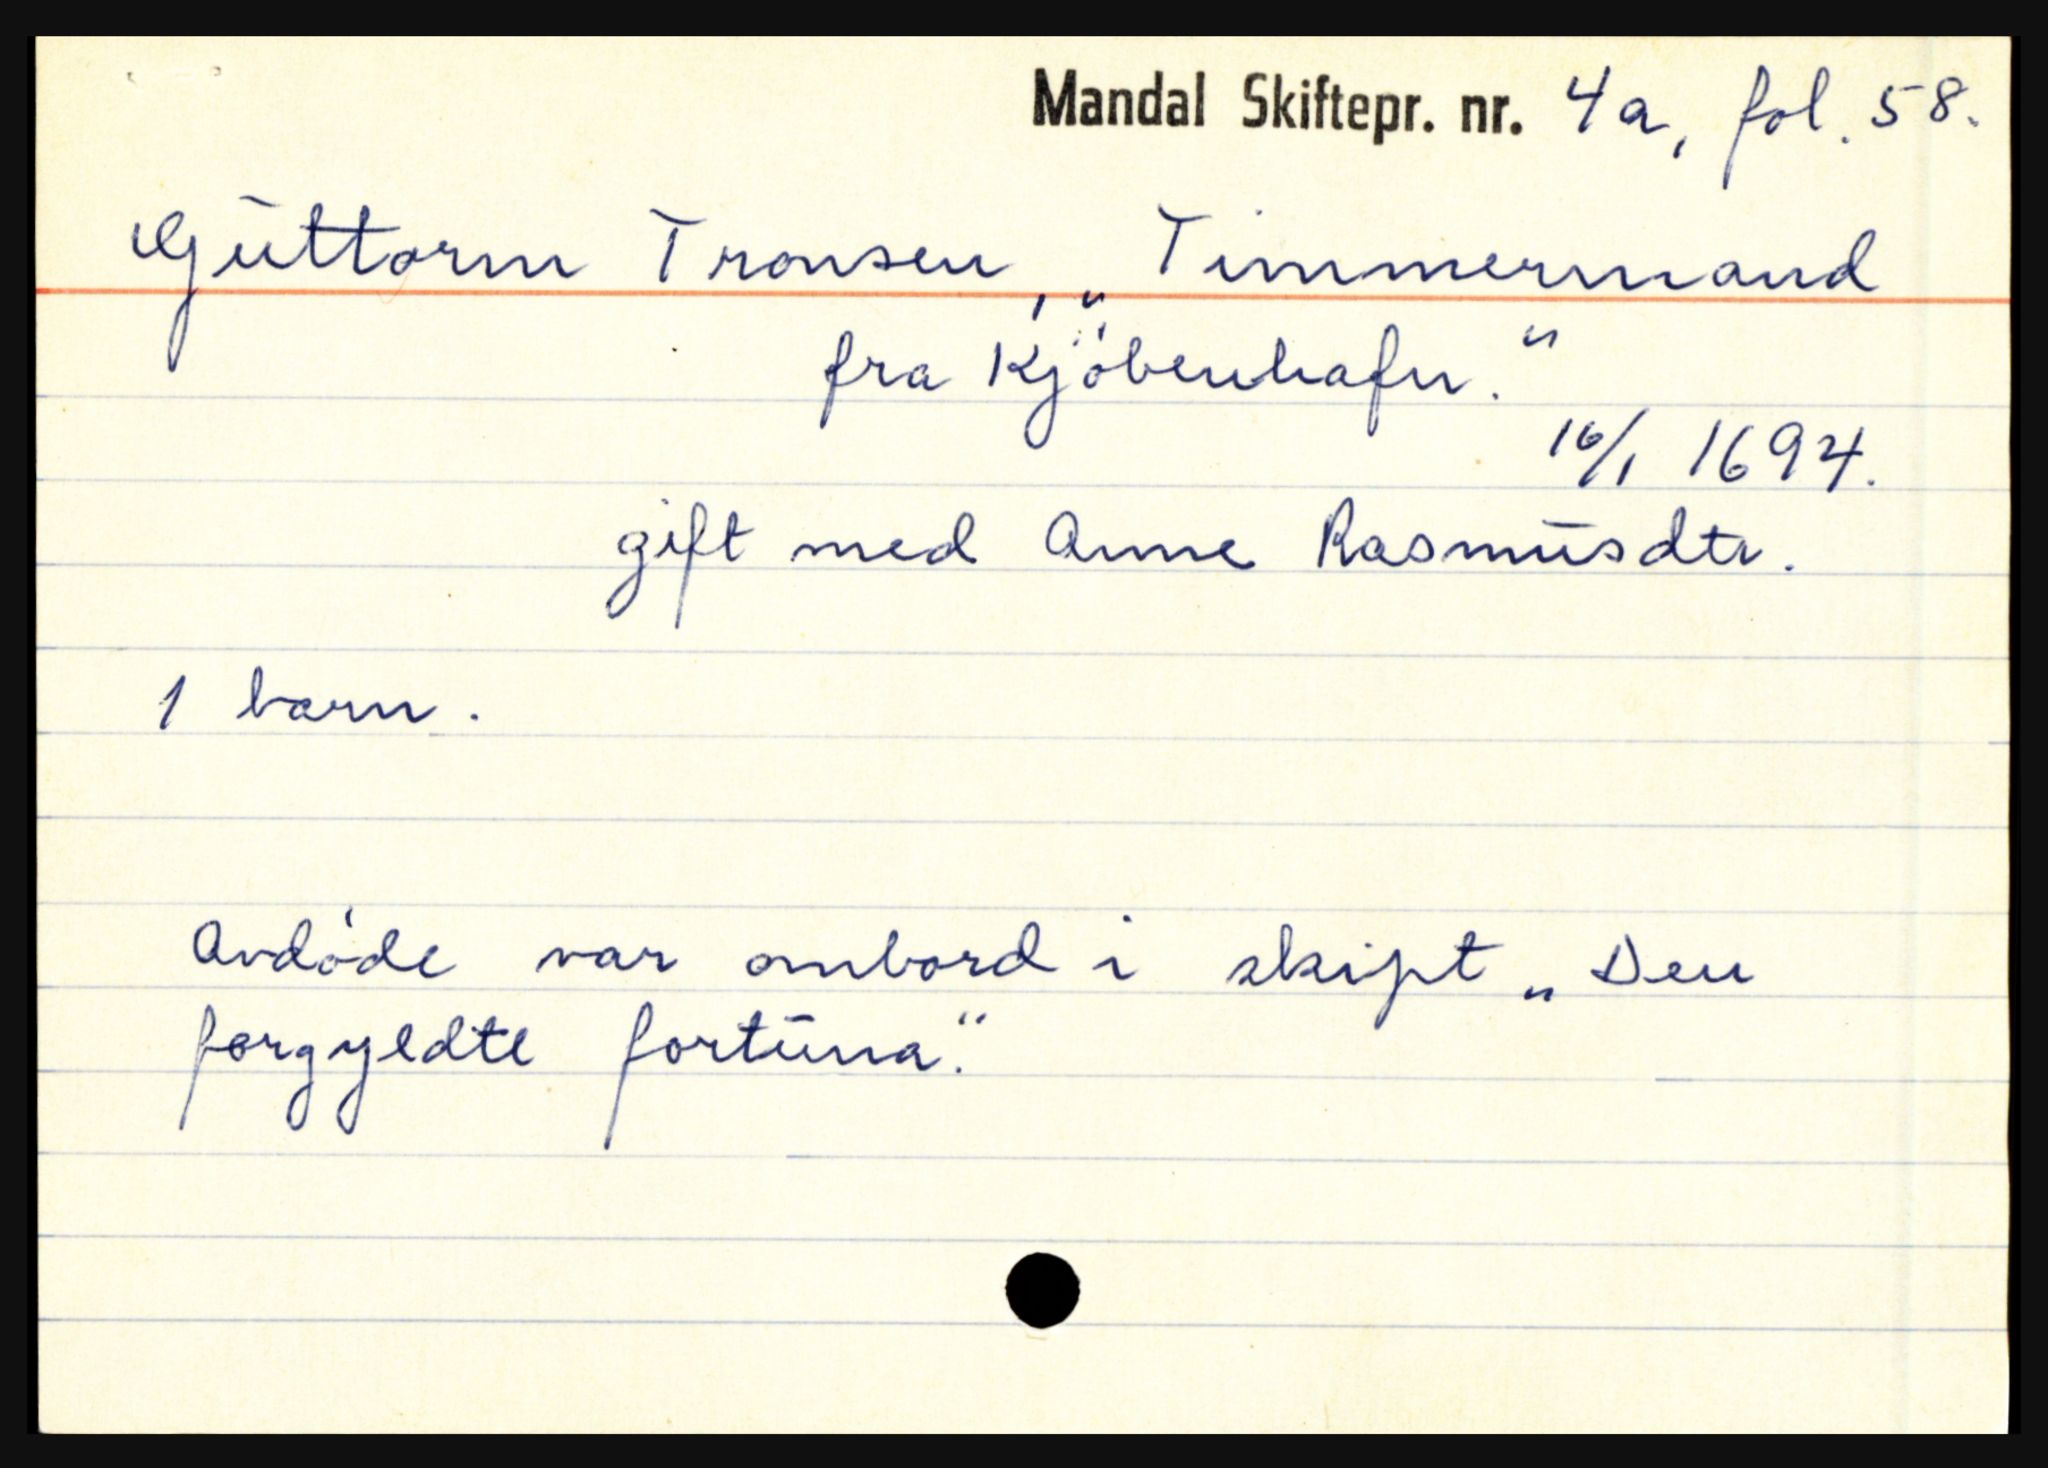 Mandal Skiftepr. nr. 4a, fol. 58.
Guttorm Tronsen, „Timmermand
fra Kjöbenhafn."
16/1 1694.
gift med Anne Rasmusdtr.
1 barn.
Avdöde var ombord i skipt „Den
forgyldte fortuna."